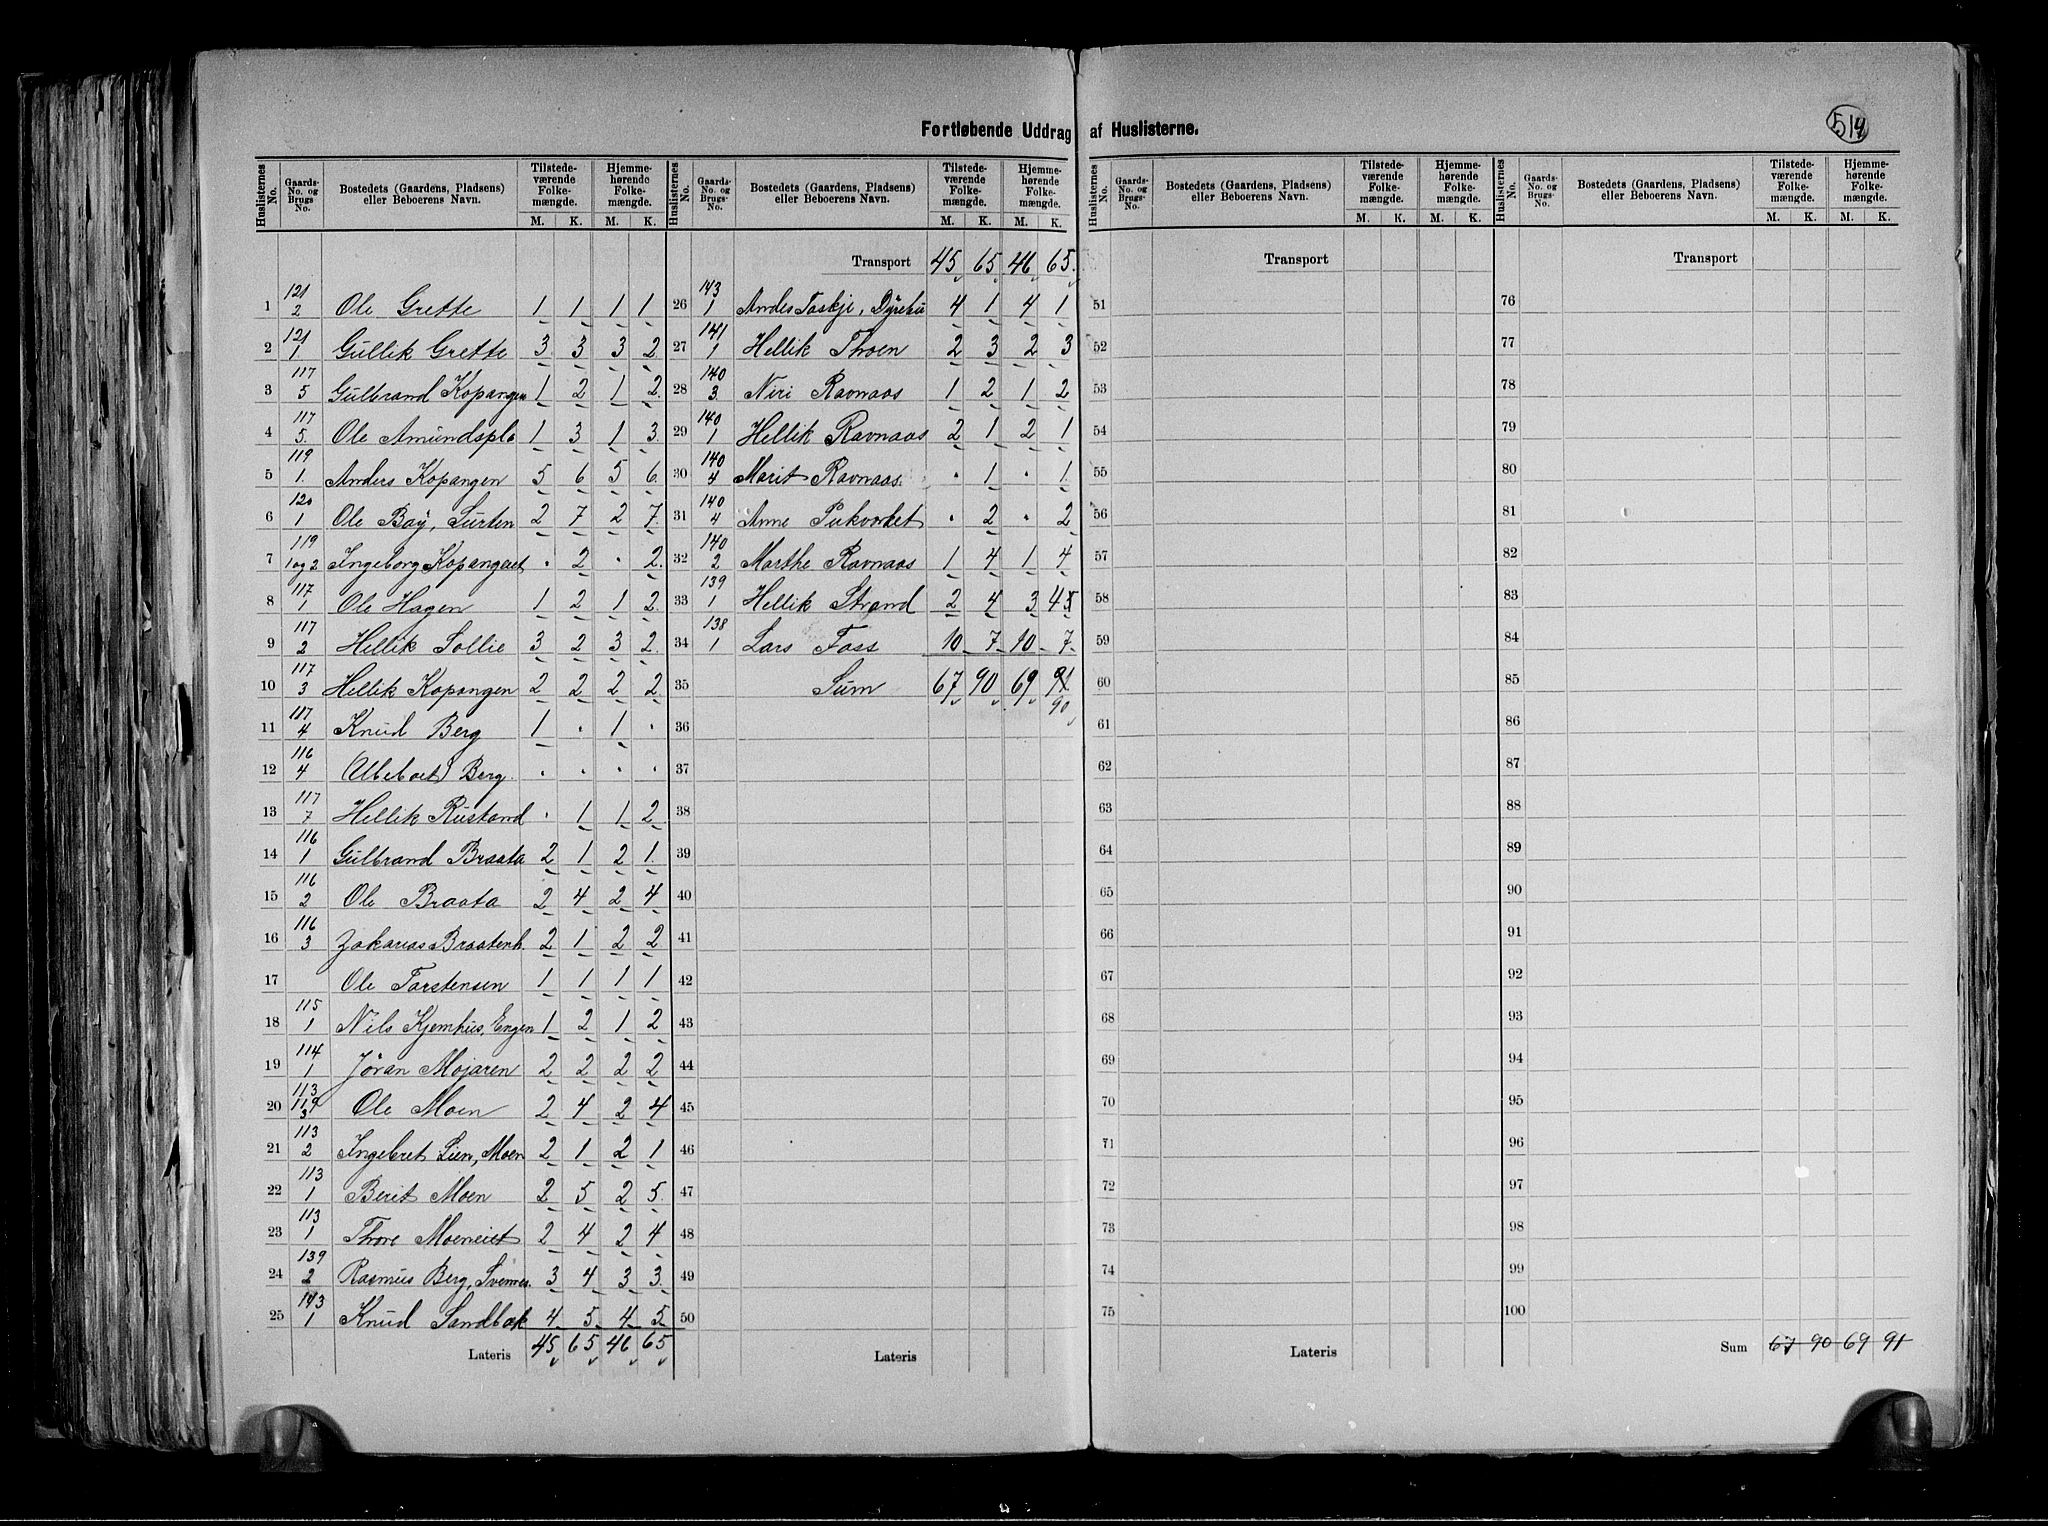 Fortløbende Uddrag af Huslisterne.
514
Huslisternes No. Gaards- No. og Brugs- No. Bostedets (Gaardens, Pladsens) eller Beboerens Navn. Tilstede- værende Folke- mængde. M. K. Hjemme- hørende Folke- mængde. M. K.
1 121 2 Ole Grette 1 1 1 1
2 121 1 Gullik Grette 3 3 3 2
3 117 5 Gulbrand Kopangen 1 2 1 2
4 117 5. Ole Amundspl. 1 3 1 3.
5 119 1. Anders Kopangen 5 6 5 6.
6 120 1 Ole Bay, Surten 2 7 2 7.
7 119 1 og 2 Ingeborg Kopangeret . 2 . 2.
8 117 1 Ole Hagen 1 2 1 2.
9 117 2 Hellik Sollie 3 2 3 2.
10 117 3 Hellik Kopangen 2 2 2 2
11 117 4 Knud Berg 1 . 1 .
12 116 4 Ubeboet Berg . . . .
13 117 7 Hellik Rustand . 1 1 2
14 116 1 Gulbrand Braata 2 1 2 1.
15 116 2 Ole Braata 2 4 2 4
16 116 3 Zakarias Braatenh. 2 1 2 2
17 Ole Torstensen 1 1 1 1
18 115 1 Nils Kjemhus, Engen 1 2 1 2
19 114 1 Jøran Mojaren 2 2 2 2
20 113 119 3 Ole Moen 2 4 2 4
21 113 2 Ingebret Lien, Moen 2 1 2 1
22 113 1 Berit Moen 2 5 2 5.
23 113 1 Thore Moeneiet 2 4 2 4
24 139 2 Rasmus Berg, Svennes. 3 4 3 3.
25 143 1 Knud Sandbæk 4 5 4 5
Lateris 45 65 46 65
Huslisternes No. Gaards- No. og Brugs- No. Bostedets (Gaardens, Pladsens) eller Beboerens Navn. Tilstede- værende Folke- mængde. M. K. Hjemme- hørende Folke- mængde. M. K.
Transport 45 65 46 65.
26 143 1 Andes Taskje, Dyrehu 4 1 4 1
27 141 1 Hellik Thoen 2 3 2 3
28 140 3. Niri Ravnaas 1 2 1 2
29 140 1 Hellik Ravnaas 2 1 2 1
30 140 4 Marit Ravnaas. . 1 . 1.
31 140 4 Anne Pukverket . 2 . 2
32 140 2 Marthe Ravnaas 1 4 1 4
33 139 1 Hellik Strand 2 4 3 4 5
34 138 1 Lars Foss 10 7 10 7
35 Sum 67 90 69 91
90
36
37
38
39
40
41
42
43
44
45
46
47
48
49
50
Lateris
Huslisternes No. Gaards- No. og Brugs- No. Bostedets (Gaardens, Pladsens) eller Beboerens Navn. Tilstede- værende Folke- mængde. M. K. Hjemme- hørende Folke- mængde. M. K.
Transport
51
52
53
54
55
56
57
58
59
60
61
62
63
64
65
66
67
68
69
70
71
72
73
74
75
Lateris
Huslisternes No. Gaards- No. og Brugs- No. Bostedets (Gaardens, Pladsens) eller Beboerens Navn. Tilstede- værende Folke- mængde. M. K. Hjemme- hørende Folke- mængde. M. K.
Transport
76
77
78
79
80
81
82
83
84
85
86
87
88
89
90
91
92
93
94
95
96
97
98
99
100
Sum 67 90 69 91